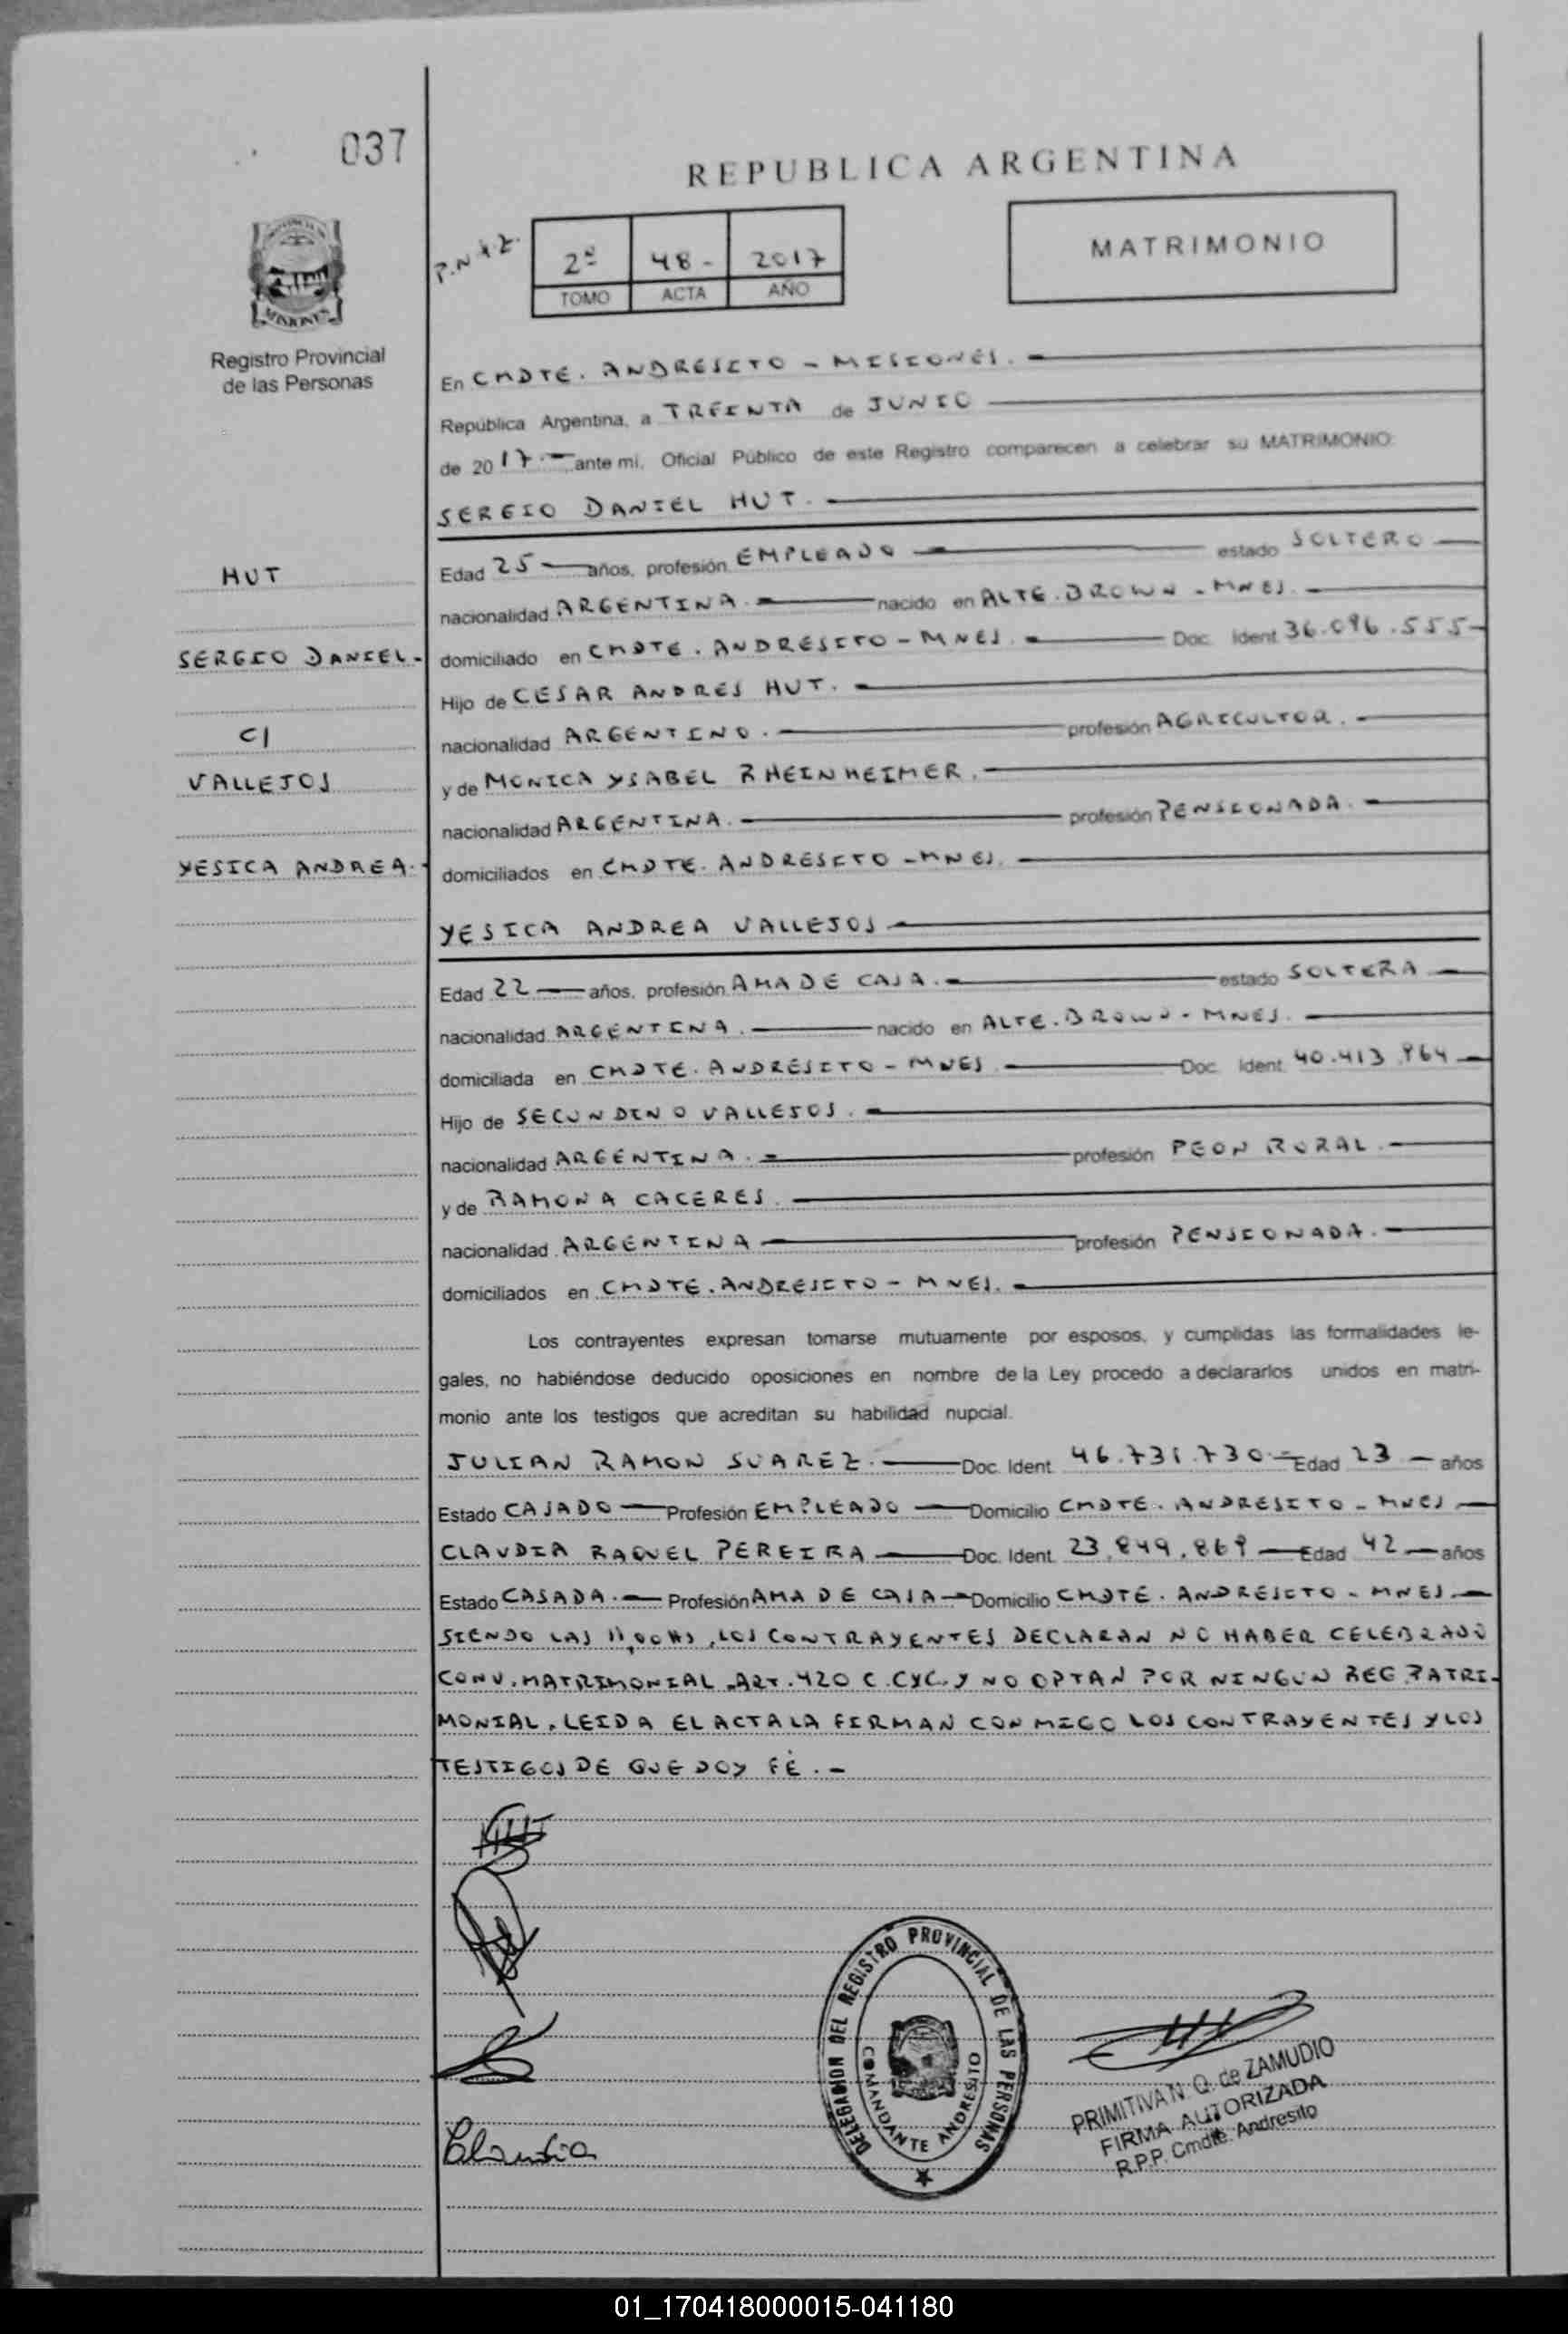 037
REPUBLICA ARGENTINA
MATRIMONIO
2º 48- 2017
TOMO ACTA AÑO
MISIONES
Registro Provincial
de las Personas
En CMDTE. ANDRESITO - MISIONES.
República Argentina, a TREINTA de JUNIO
de 2017.- ante mi, Oficial Público de este Registro comparecen a celebrar su MATRIMONIO:
SERGIO DANIEL HUT.
HUT
Edad 25 años, profesión EMPLEADO estado SOLTERO
nacionalidad ARGENTINA. nacido en ALTE. BROWN - MNES.
SERGIO DANIEL.-
domiciliado en CMDTE. ANDRESITO - MNES. Doc. Ident. 36.096.555-
Hijo de CESAR ANDRES HUT.
C/
nacionalidad ARGENTINO. profesión AGRICULTOR.
VALLEJOS
y de MONICA YSABEL RHEINHEIMER.
nacionalidad ARGENTINA. profesión PENSIONADA.
YESICA ANDREA.-
domiciliados en CMDTE. ANDRESITO - MNES.
YESICA ANDREA VALLEJOS
Edad 22 años, profesión AMA DE CASA. estado SOLTERA
nacionalidad ARGENTINA. nacido en ALTE. BROWN - MNES.
domiciliada en CMDTE. ANDRESITO - MNES. Doc. Ident. 40.413.964
Hijo de SECUNDINO VALLEJOS.
nacionalidad ARGENTINA. profesión PEON RURAL.
y de RAMONA CACERES.
nacionalidad ARGENTINA profesión PENSIONADA.
domiciliados en CMDTE. ANDRESITO - MNES.
Los contrayentes expresan tomarse mutuamente por esposos, y cumplidas las formalidades le-
gales, no habiéndose deducido oposiciones en nombre de la Ley procedo a declararlos unidos en matri-
monio ante los testigos que acreditan su habilidad nupcial.
JULIAN RAMON SUAREZ. Doc. Ident. 46.731.730.- Edad 23 años
Estado CASADO Profesión EMPLEADO Domicilio CMDTE. ANDRESITO - MNES
CLAUDIA RAQUEL PEREIRA Doc. Ident. 23.849.869 Edad 42 años
Estado CASADA. Profesión AMA DE CASA Domicilio CMDTE. ANDRESITO - MNES.
SIENDO LAS 11,00HS, LOS CONTRAYENTES DECLARAN NO HABER CELEBRADO
CONV. MATRIMONIAL. ART. 420 C.CYC. Y NO OPTAN POR NINGUN REG. PATRI-
MONIAL. LEIDA EL ACTA LA FIRMAN CON MIGO LOS CONTRAYENTES Y LOS
TESTIGOS DE QUE DOY FÉ.-
Claudia
DELEGACION DEL REGISTRO PROVINCIAL DE LAS PERSONAS
COMANDANTE ANDRESITO
PRIMITIVA N. Q. de ZAMUDIO
FIRMA AUTORIZADA
R.P.P. Cmdte. Andresito
01_170418000015-041180